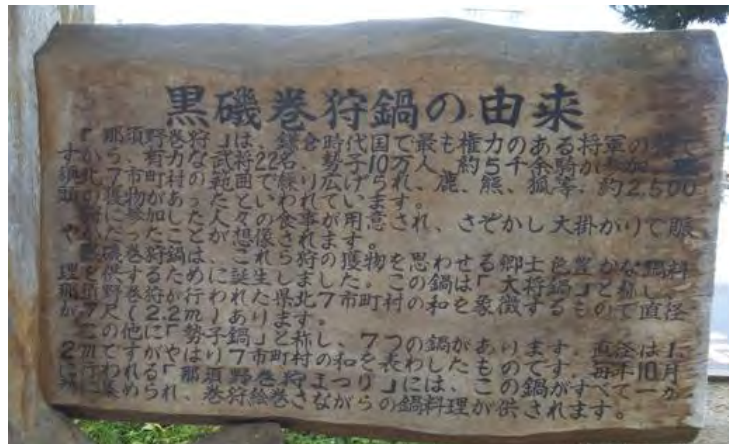 黒磯巻狩鍋の由来
「那須野巻狩」は、鎌倉時代国で最も権力のある将軍の狩で
すから、有力な武将22名、勢子10万人、約5千余騎が参加、
県北7市町村の範囲で繰り広げられ、鹿、熊、狐等、約2,500
頭の獲物があったといわれています。
狩に参加した人々の食事が用意され、さぞかし大掛がりで賑
やかだったことが想像されます。
黒磯巻狩鍋は、これら狩の獲物を思わせる郷土色豊かな鍋料
理を供するために誕生しました。この鍋は「大将鍋」と称し、
那須野巻狩が行われた県北7市町村の和を象徴するもので直径
が7尺(2.2m)あります。
この他に「勢子鍋」と称し、7つの鍋があります。直径は1.
2mですがやはり7市町村の和を表わしたものです。毎年10月
に行われる「那須野巻狩まつり」には、この鍋がすべて一か
所に集められ、巻狩絵巻さながらの鍋料理が供されます。